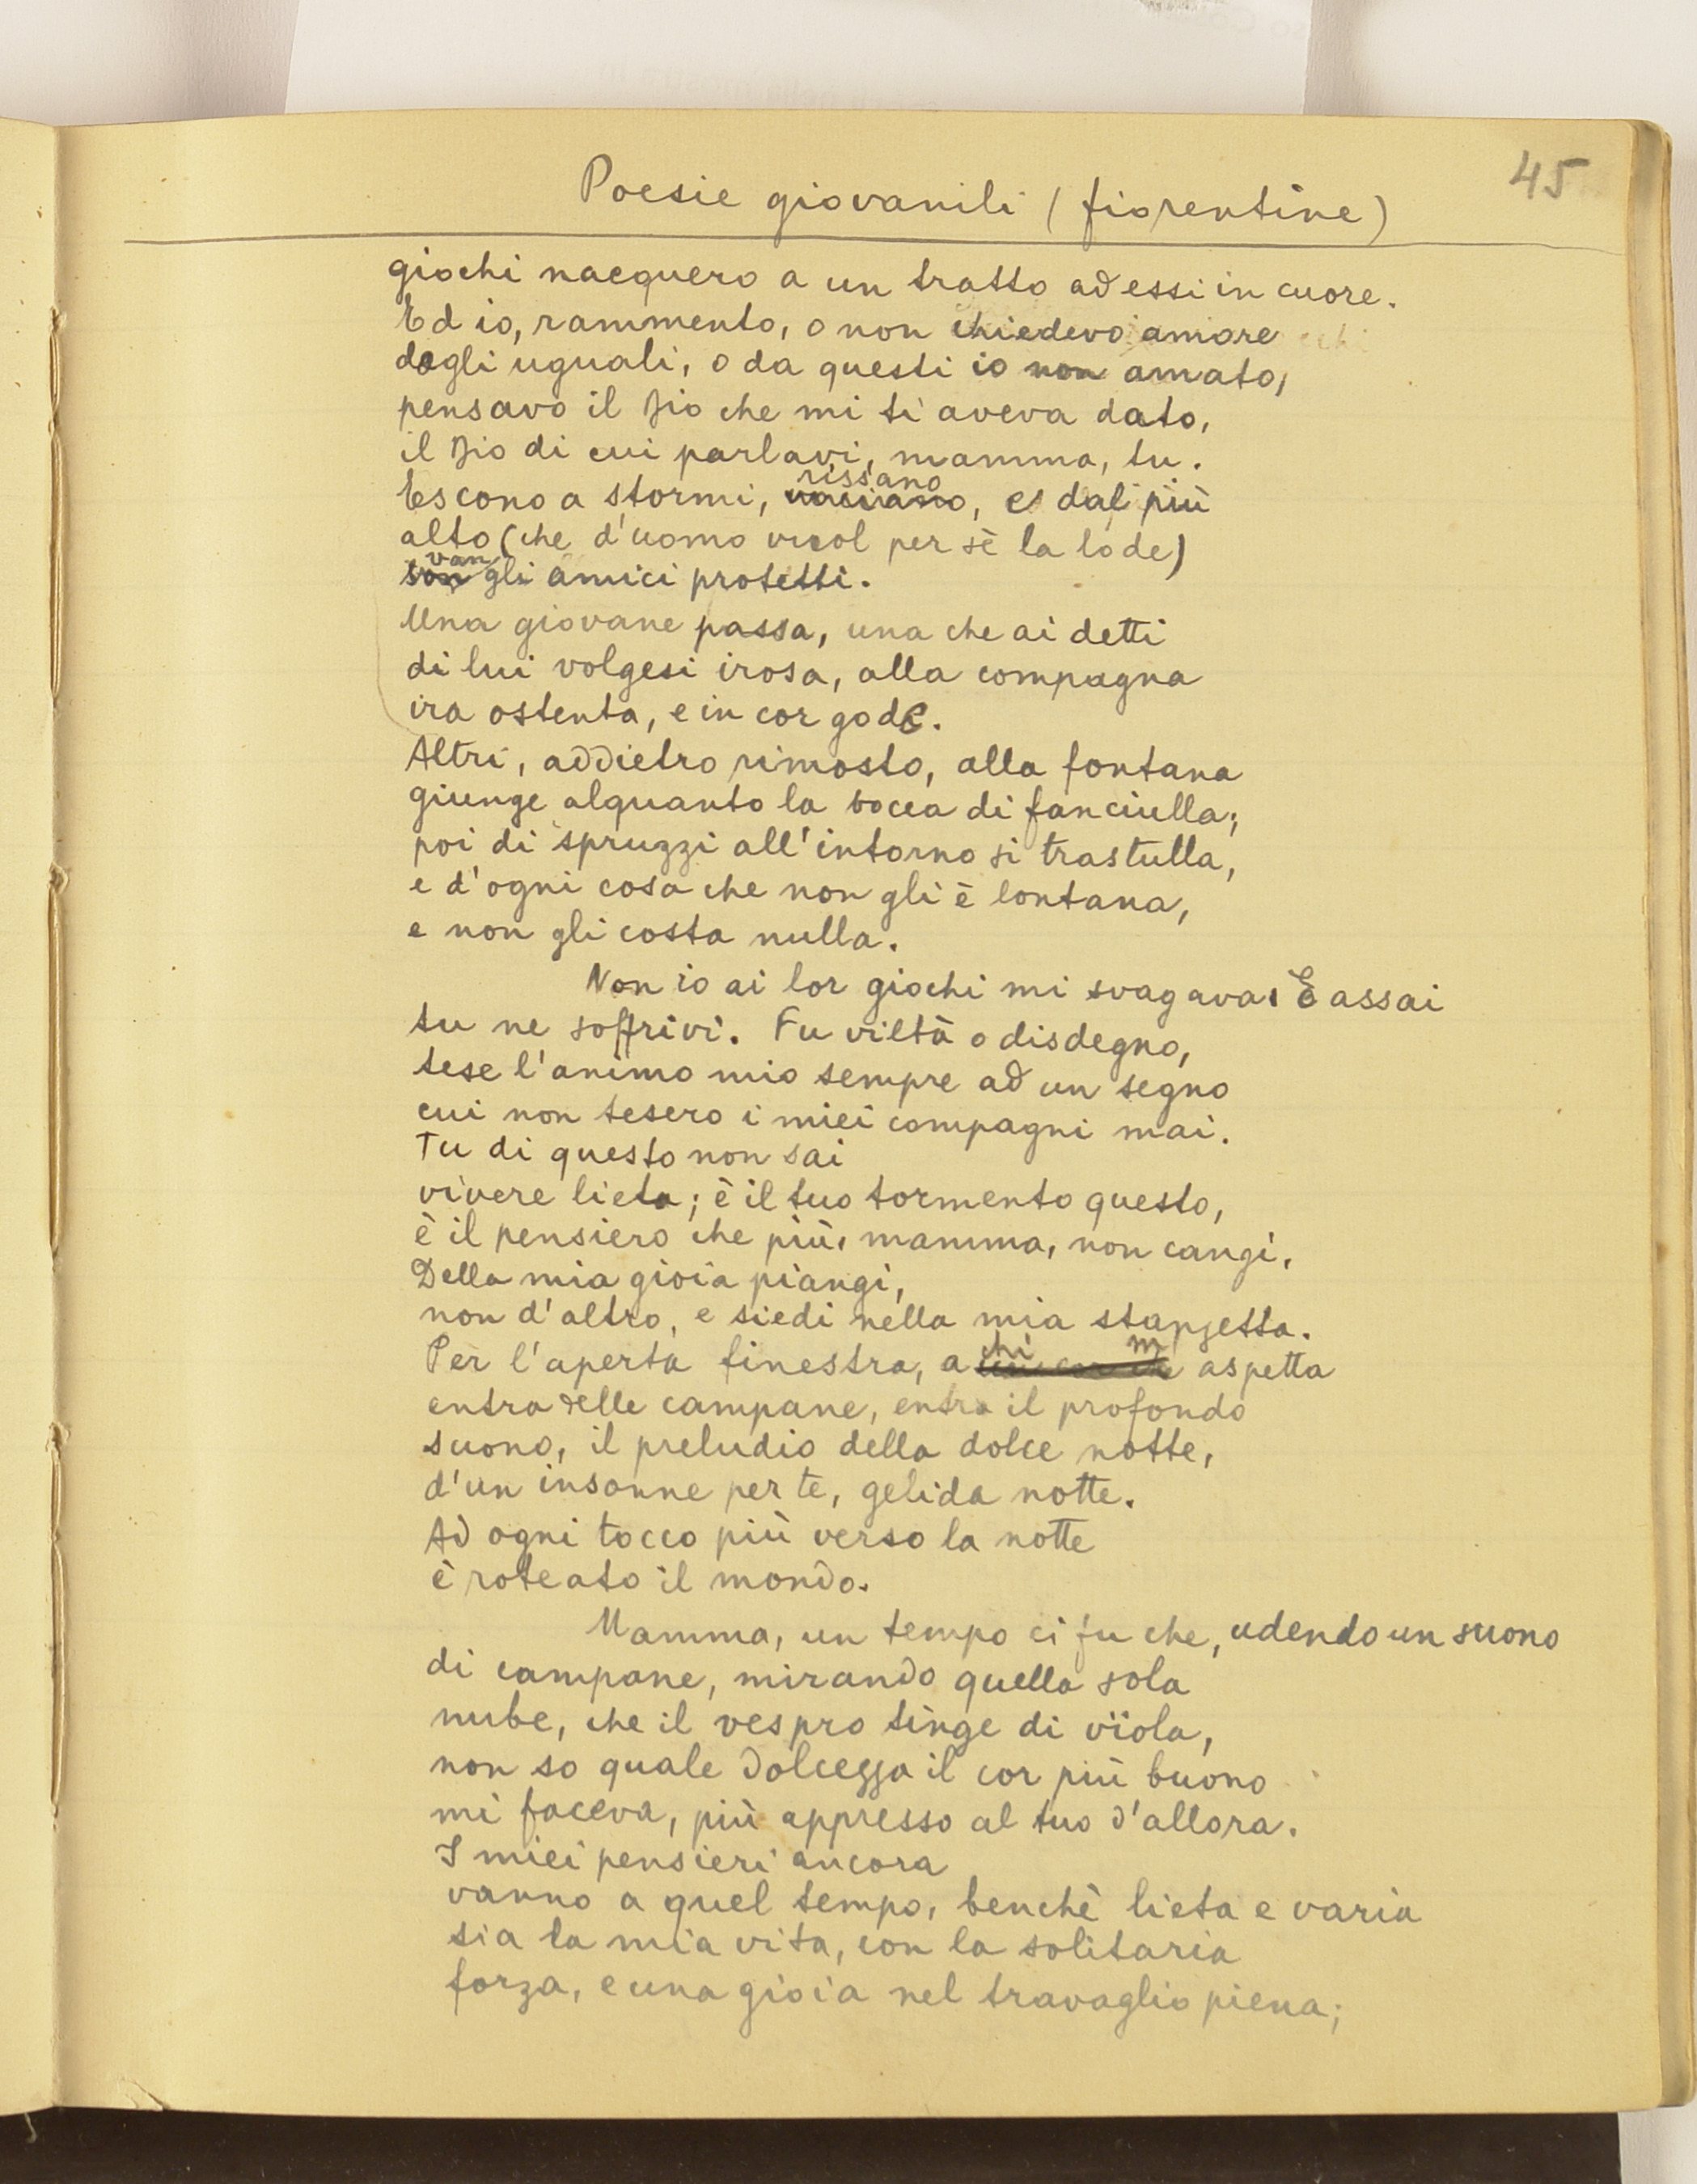 45
Poesie giovanili (fiorentine)
giochi nacquero a un tratto ad essi in cuore.
Ed io, rammento, o non chiedevo amore
dagli uguali, o da questi io non amato,
pensavo il Dio che mi ti aveva dato,
il Dio di cui parlavi, mamma, tu.
rissano
Escono a stormi, vociano, e dal più
alto (che d'uomo vuol per sè la lode)
van
son gli amici protetti.
Una giovane passa, una che ai detti
di lui volgesi irosa, alla compagna
ira ostenta, e in cor gode.
Altri, addietro rimasto, alla fontana
giunge alquanto la bocca di fanciulla;
poi di spruzzi all'intorno si trastulla,
e d'ogni cosa che non gli è lontana,
e non gli costa nulla.
Non io ai lor giochi mi svagava. E assai
tu ne soffrivi. Fu viltà o disdegno,
tese l'animo mio sempre ad un segno
cui non tesero i miei compagni mai.
Tu di questo non sai
vivere lieta; è il tuo tormento questo,
è il pensiero che più, mamma, non cangi.
Della mia gioia piangi,
non d'altro, e siedi nella mia stanzetta.
chi m
Per l'aperta finestra, a aspetta
entra delle campane, entra il profondo
suono, il preludio della dolce notte,
d'un insonne per te, gelida notte.
Ad ogni tocco più verso la notte
è roteato il mondo.
Mamma, un tempo ci fu che, udendo un suono
di campane, mirando quella sola
nube, che il vespro tinge di vïola,
non so quale dolcezza il cor più buono
mi faceva, più appresso al tuo d'allora.
I miei pensieri ancora
vanno a quel tempo, benchè lieta e varia
sia la mia vita, con la solitaria
forza, e una gioia nel travaglio piena;